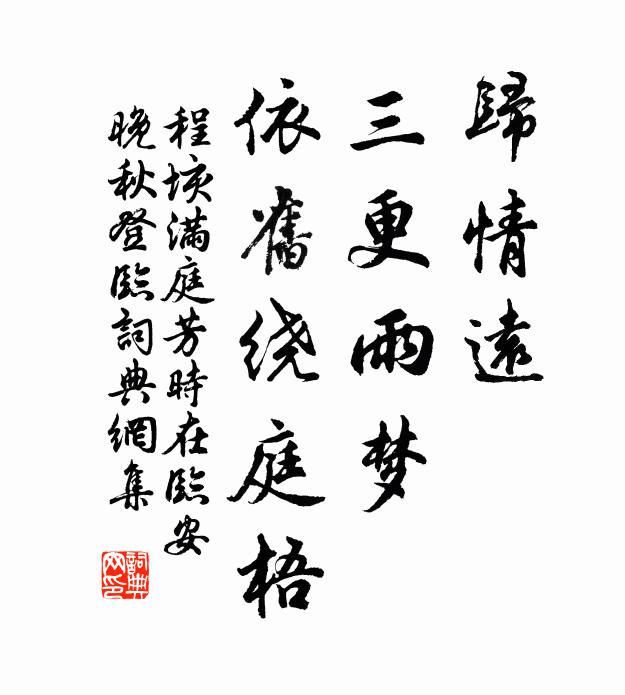 歸情遠
三更雨梦
依舊绕庭梧
程垓满庭芳時在臨安
晚秋登臨詞典網集
詞典
网印